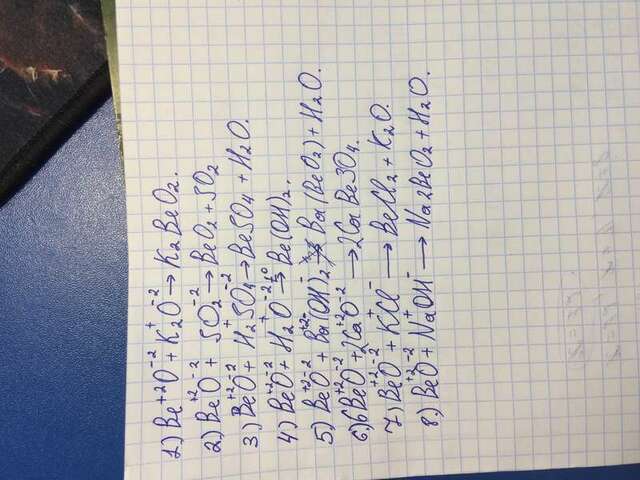 1) Be⁺²O⁻² + K₂⁺O⁻² → K₂BeO₂.
2) Be⁺²O⁻² + SO₂⁻² → BeO₂ + SO₂
3) Be⁺²O⁻² + H₂⁺SO₄⁻² → BeSO₄ + H₂O.
4) Be⁺²O⁻² + H₂⁺O⁻² t° → Be(OH)₂.
5) Be⁺²O⁻² + Ba⁺²(OH)⁻₂ → Ba(BeO₂) + H₂O.
6) 6Be⁺²O⁻² + 2Ca⁺²O⁻² → 2CaBe3O₄.
7) Be⁺²O⁻² + K⁺Cl⁻ → BeCl₂ + K₂O.
8) Be⁺²O⁻² + Na⁺OH⁻ → Na₂BeO₂ + H₂O.